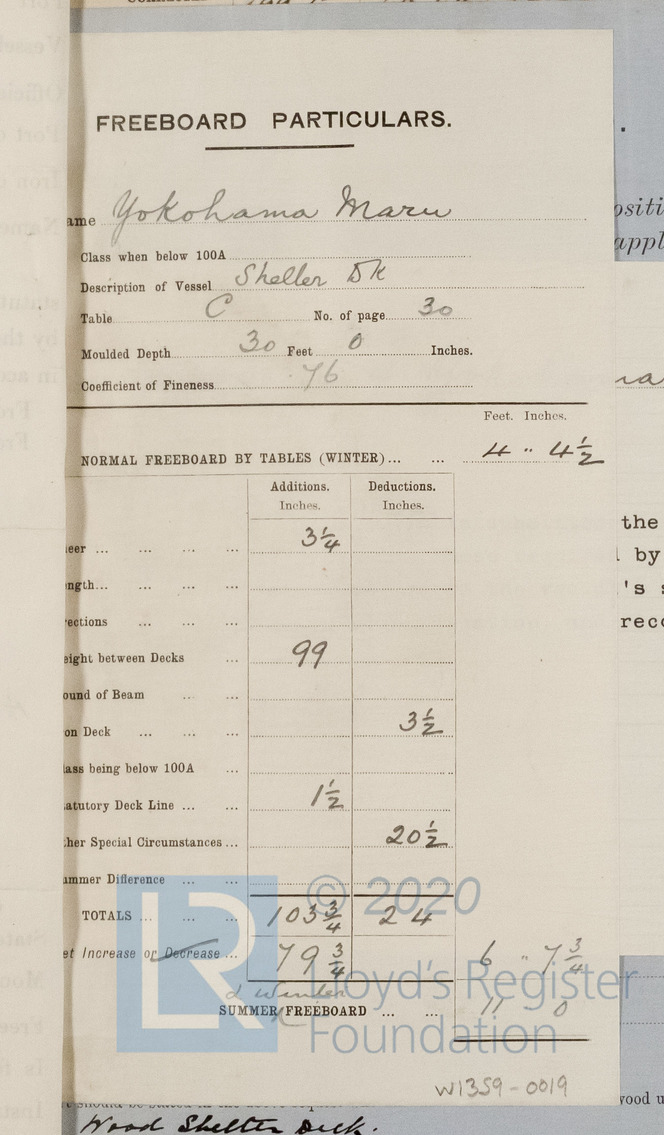 FREEBOARD PARTICULARS.
ame Yokohama Maru
Class when below 100A
Description of Vessel Shelter Dk
Table C No. of page 30
Moulded Depth 30 Feet 0 Inches.
Coefficient of Fineness .76
Feet. Inches.
NORMAL FREEBOARD BY TABLES (WINTER)... ... 4 " 4½
Additions. Deductions.
Inches. Inches.
eer ... ... ... ... 3¼
ngth... ... ... ...
ections ... ... ...
eight between Decks ... 99
ound of Beam ... ...
on Deck ... ... ... 3½
ass being below 100A ...
atutory Deck Line ... ... 1½
her Special Circumstances ... 20½
ummer Difference ... ...
TOTALS ... ... ... 103¾ 24
et Increase or Decrease ... 79¾ 6 " 7¾
& Winter
SUMMER FREEBOARD ... ... 11 0
© 2020
Lloyd's Register
Foundation
W1359-0019
Wood Shelter Deck.
positi
appl
the
by
's s
reco
wood u